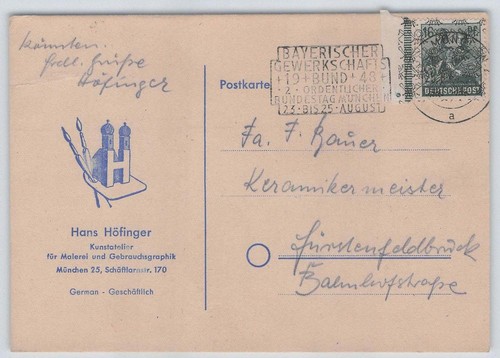 könnten.
frdl. Grüße
Höfinger
H
Hans Höfinger
Kunstatelier
für Malerei und Gebrauchsgraphik
München 25, Schäftlarnstr. 170
German - Geschäftlich
Postkarte
BAYERISCHER
GEWERKSCHAFTS
+19+BUND+48+
2. ORDENTLICHER
BUNDESTAG MÜNCHEN
23.BIS 25.AUGUST
16
DEUTSCHE POST
a
Fa. F. Bauer
Keramikermeister
Fürstenfeldbrück
Bahnhofstraße